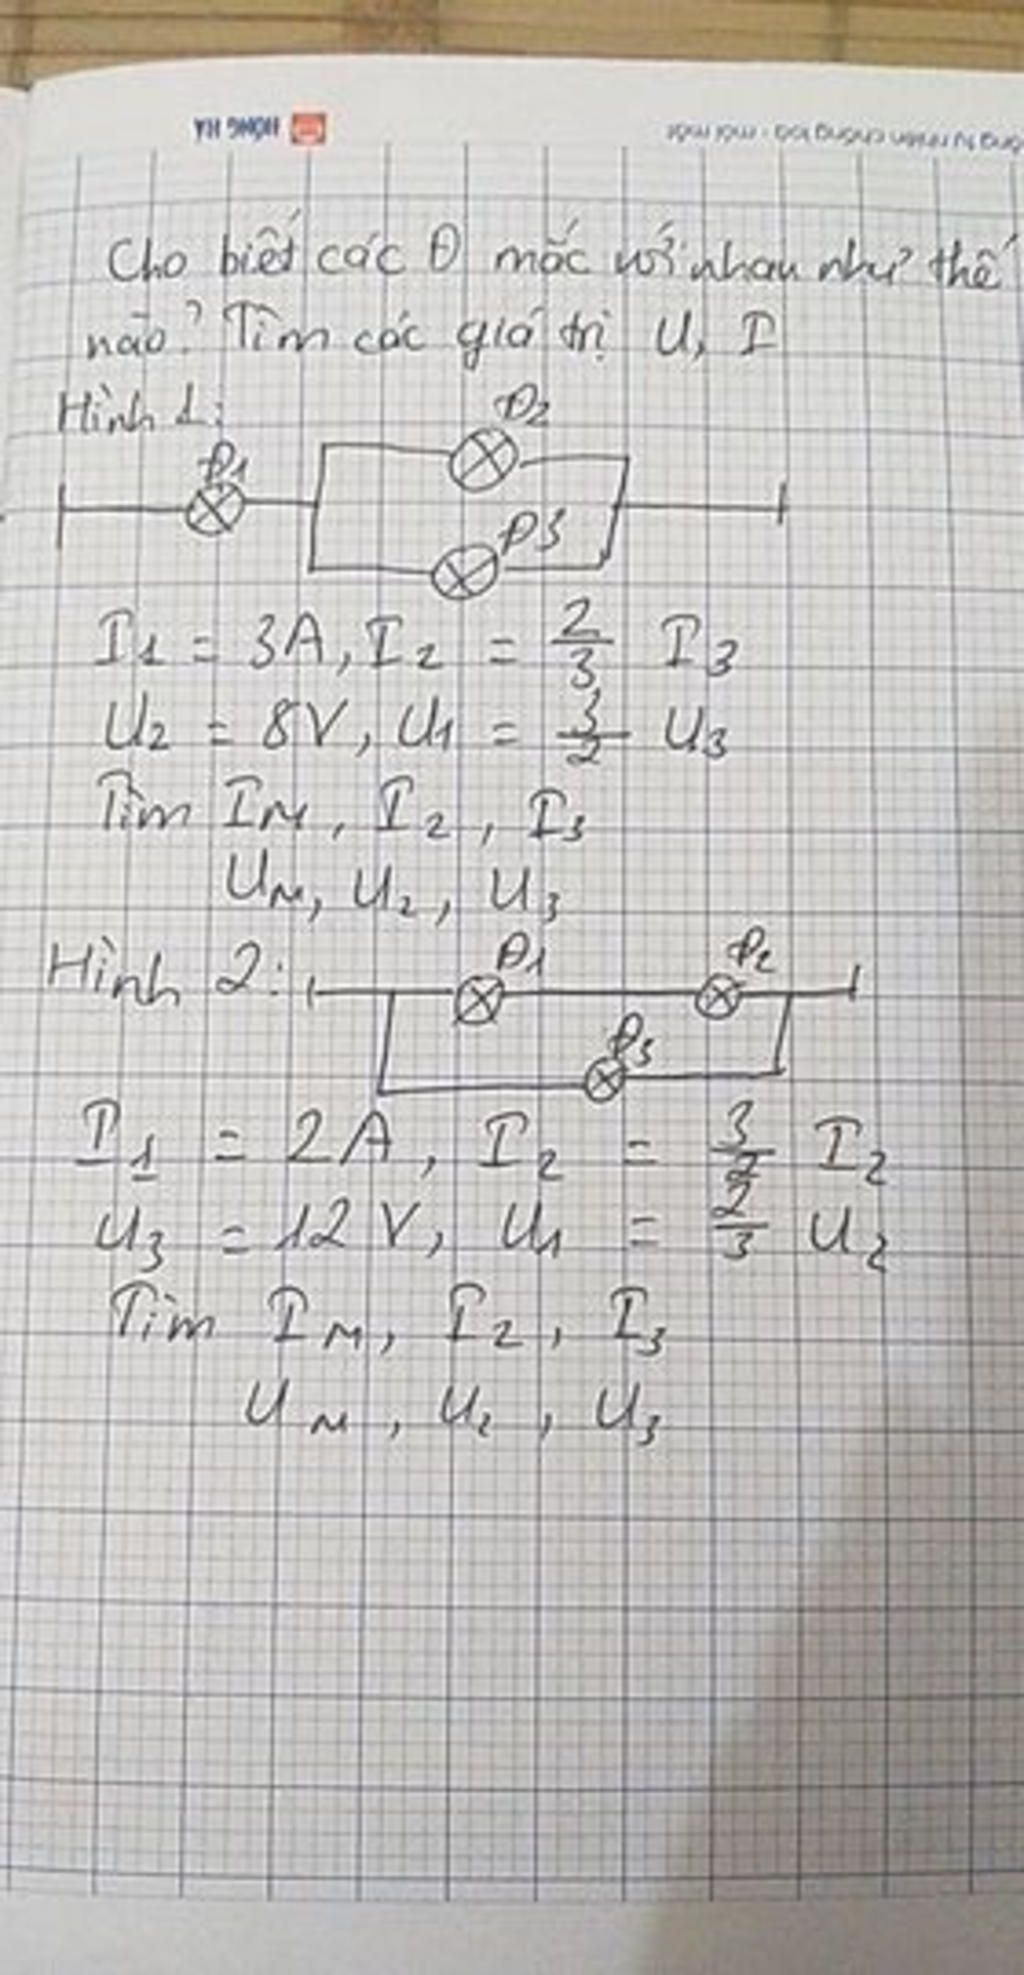 HỒNG HÀ
Cho biết các Đ mắc với nhau như thế
nào? Tìm các giá trị U, I
Hình 1:
Đ2
Đ1
Đ3
I1 = 3A, I2 = 2/3 I3
U2 = 8V, U1 = 3/2 U3
Tìm IM, I2, I3
UM, U2, U3
Hình 2:
Đ1 Đ2
Đ3
I1 = 2A, I2 = 3/2 I2
U3 = 12V, U1 = 2/3 U2
Tìm IM, I2, I3
UM, U2, U3